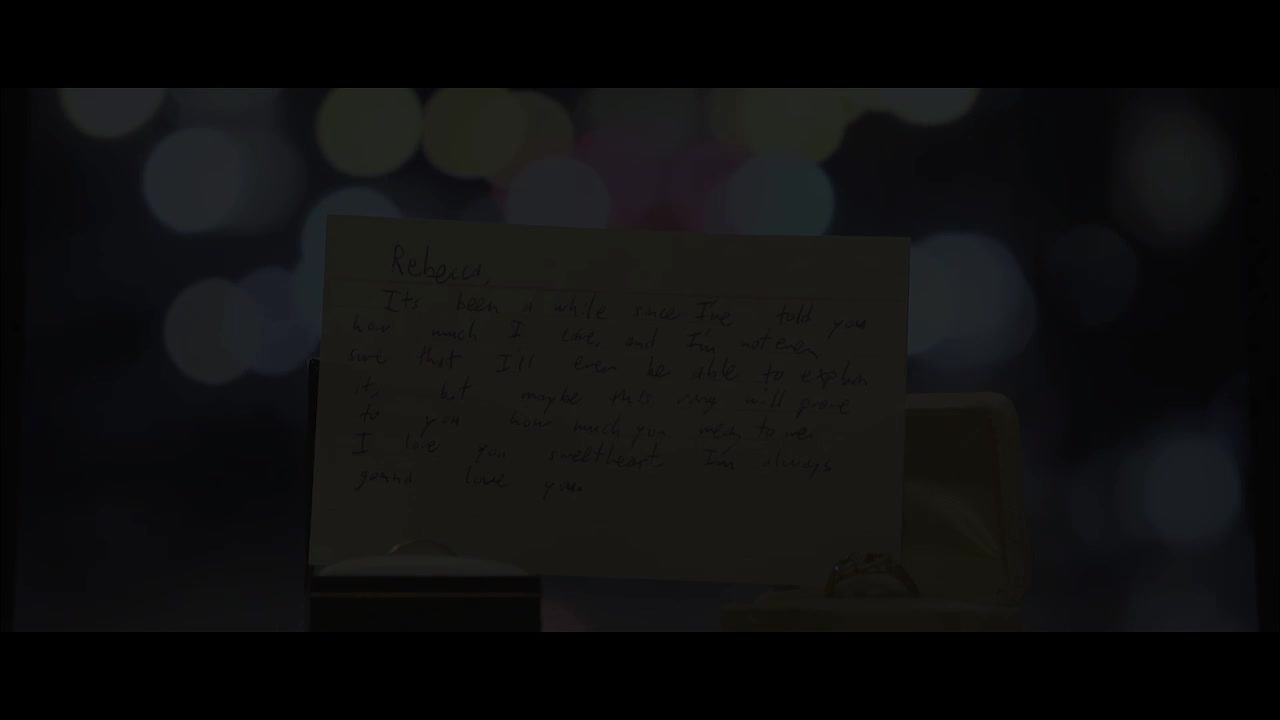 Rebecca,
Its been a while since I've told you
how much I love, and I'm not even
sure that I'll even be able to explain
it, but maybe this ring will prove
to you how much you mean to me.
I love you sweetheart, I'm always
gonna love you.